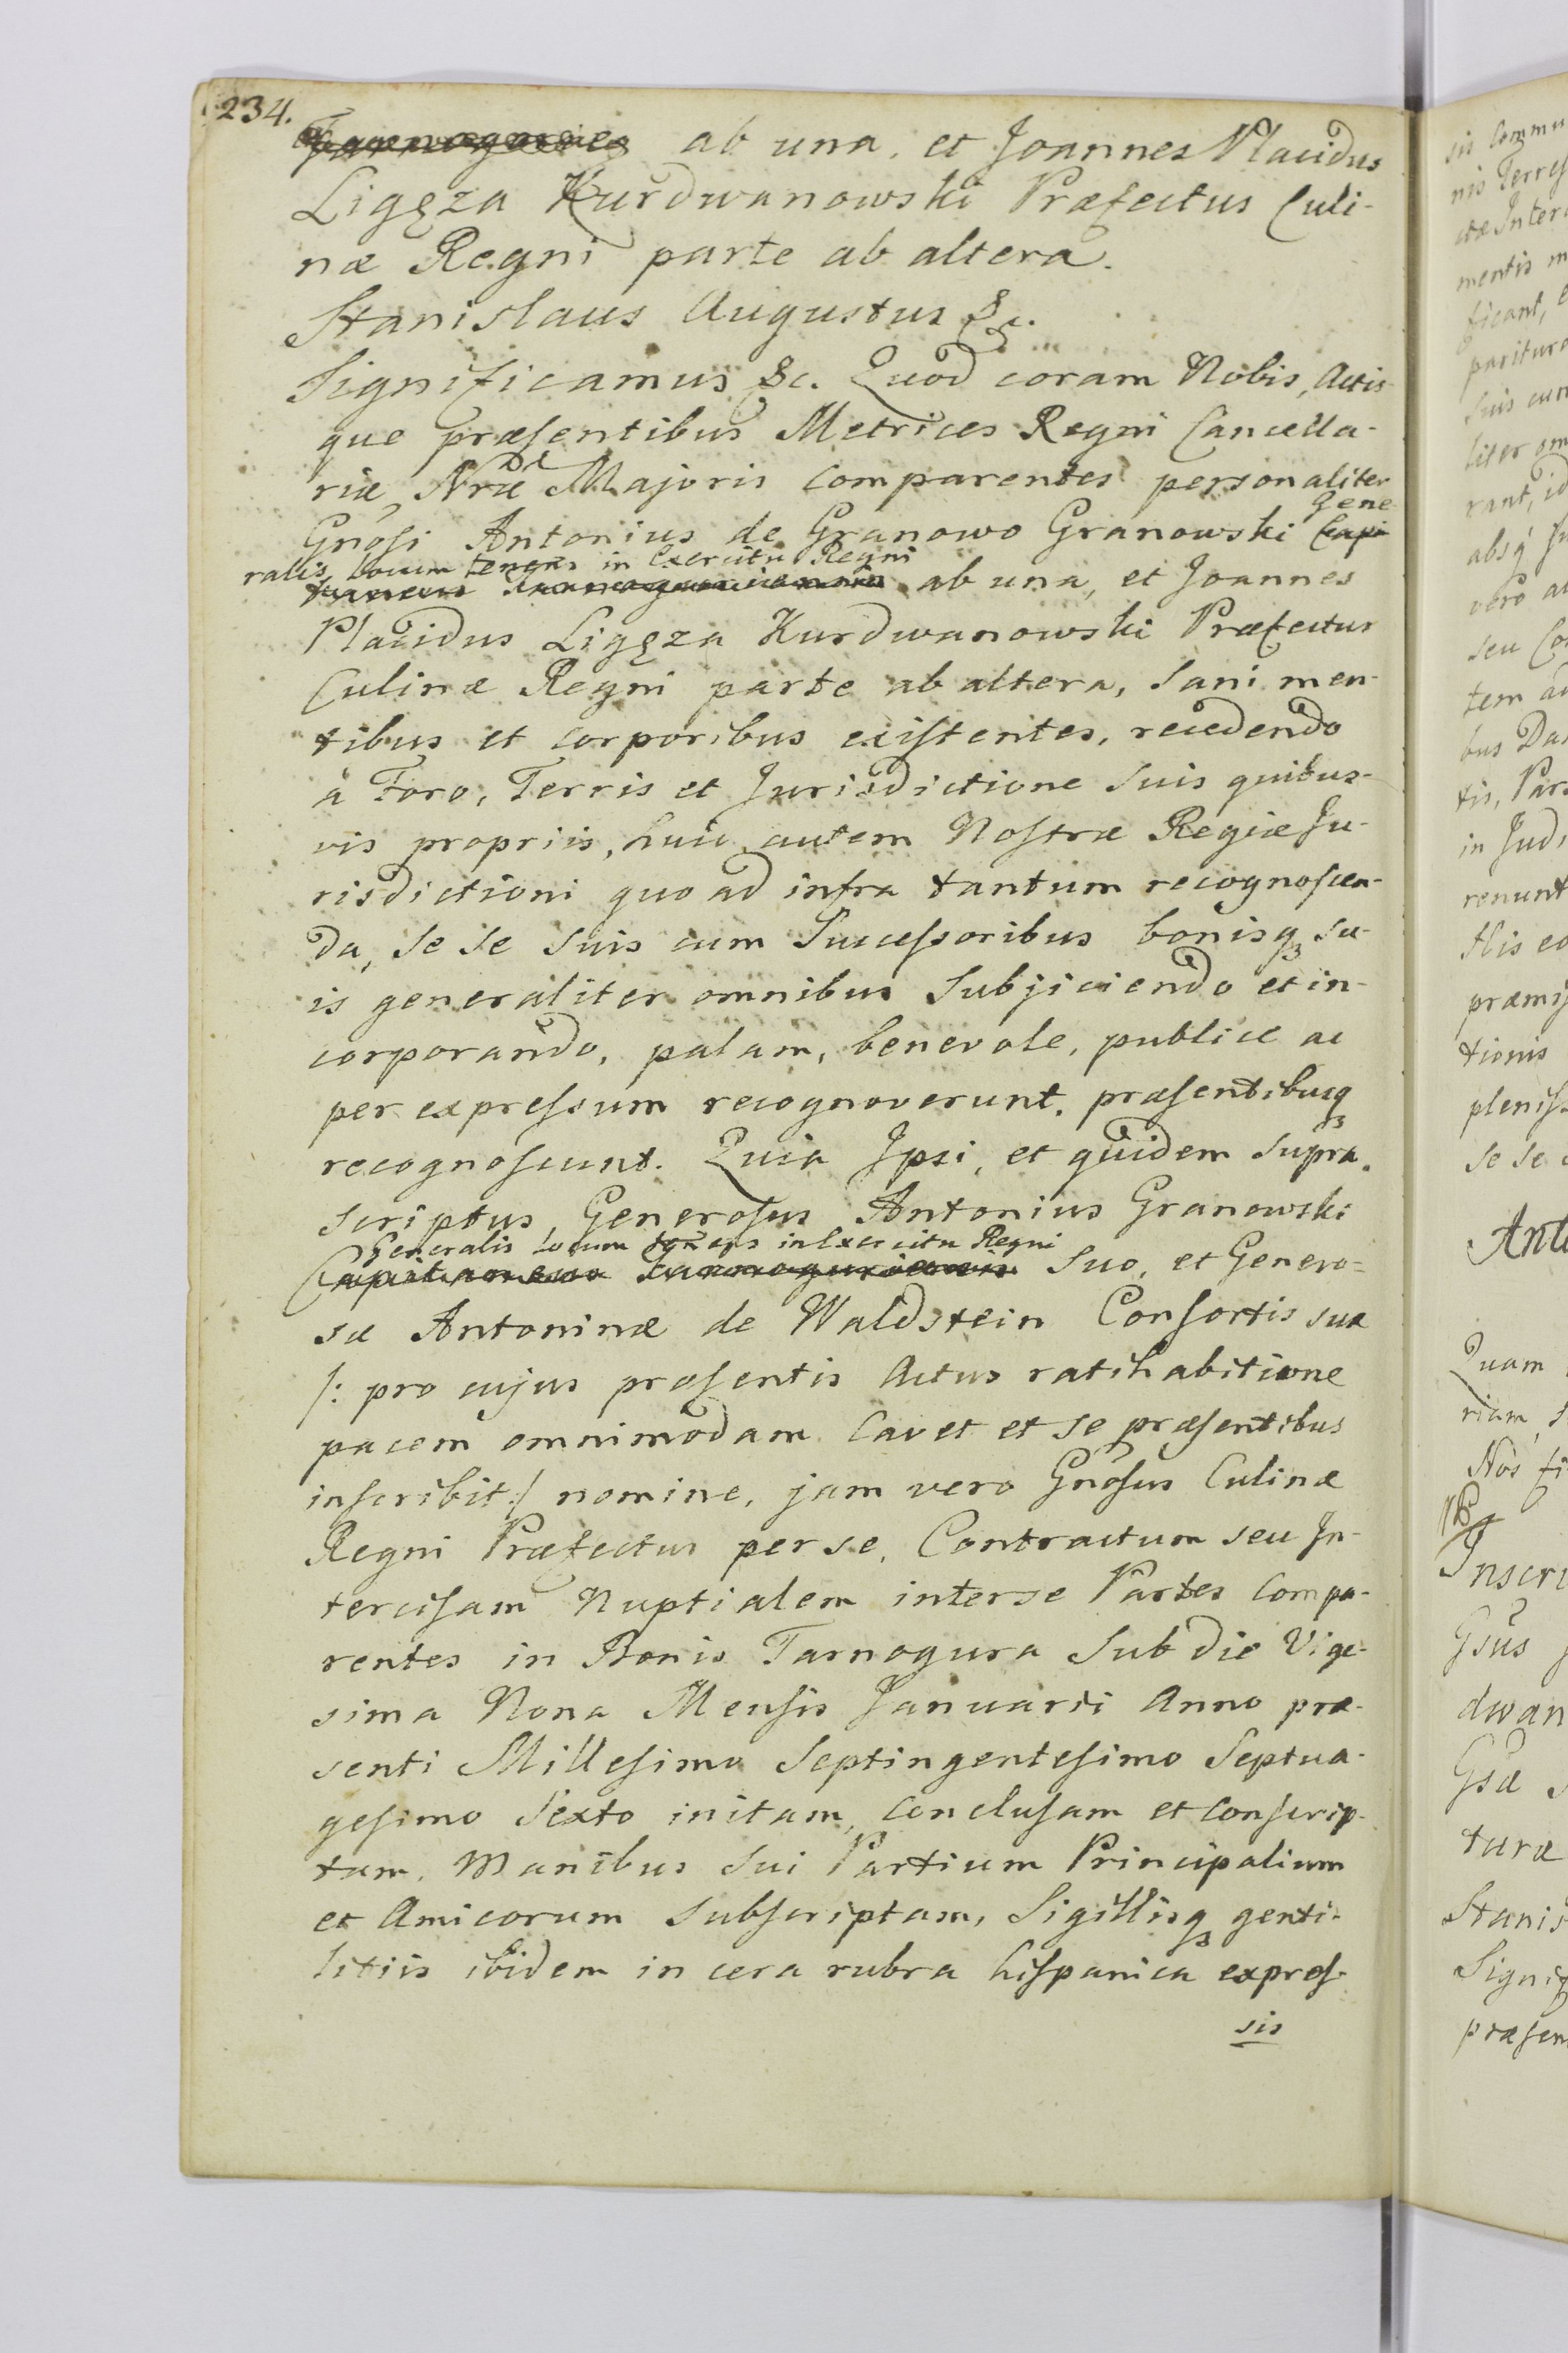 234.
ab una, et Joannes Placidus
Ligęza Kurdwanowski Præfectus Culi-
næ Regni parte ab altera.
Stanislaus Augustus &c.
Significamus &c. Quod coram Nobis, Actis-
que præsentibus Metrices Regni Cancella-
riæ Nræ Majoris comparentes personaliter
Gnosi Antonius de Granowo Granowski Capi
Gene-
ralis Locum tenens in Exercitu Regni
ab una, et Joannes
Placidus Ligęza Kurdwanowski Præfectus
Culinæ Regni parte ab altera, Sani men-
tibus et corporibus existentes, recedendo
à Foro, Terris et Jurisdictione Suis quibus-
vis propriis, huic autem Nostræ Regiæ Ju-
risdictioni quo ad infra tantum recognoscen-
da, se se suis cum Successoribus bonisq3 su-
is generaliter omnibus Subjiciendo et in-
corporando, palam, benevole, publice ac
per expressum recognoverunt, præsentibusq3
recognoscunt. Quia Ipsi, et quidem supra
scriptus, Generosus Antonius Granowski
Generalis Locum tenens in Exercitu Regni
Suo, et Genero-
sæ Antoninæ de Waldstein Consortis suæ
/: pro cujus præsentis Actus ratihabitione
pacem omnimodam Cavet et se præsentibus
inscribit :/ nomine, jam vero Gnosus Culinæ
Regni Præfectus per se, Contractum seu In-
tercisam Nuptialem inter se Partes Compa-
rentes in Bonis Tarnogura Sub die Vige-
sima Nona Mensis Januarii Anno præ-
senti Millesimo Septingentesimo Septua-
gesimo Sexto initam, Conclusam et Conscrip-
tam, Manibus Sui Partium Principalium
et Amicorum Subscriptam, Sigillisq3 genti-
litiis ibidem in cera rubra hispanica expres-
sis